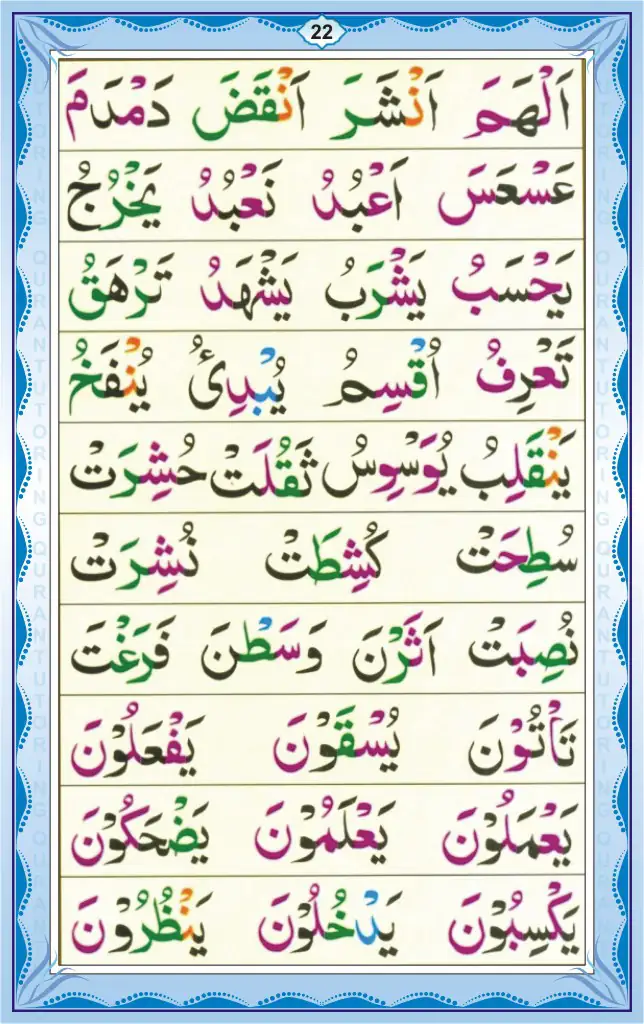 22
اَلْهَمَ اَنْشَرَ اَنْقَضَ دَمْدَمَ
عَسْعَسَ اَعْبُدُ نَعْبُدُ يَخْرُجُ
يَحْسَبُ يَشْرَبُ يَشْهَدُ تَرْهَقُ
تَعْرِفُ اُقْسِمُ يُبْدِئُ يُنْفَخُ
يَنْقَلِبُ يُوَسْوِسُ ثَقُلَتْ حُشِرَتْ
سُطِحَتْ كُشِطَتْ نُشِرَتْ
نُصِبَتْ اَثَرْنَ وَسَطْنَ فَرَغْتَ
تَأْتُوْنَ يُسْقَوْنَ يَفْعَلُوْنَ
يَعْمَلُوْنَ يَعْلَمُوْنَ يَضْحَكُوْنَ
يَكْسِبُوْنَ يَدْخُلُوْنَ يَنْظُرُوْنَ
QURAN TUTORING QURAN TUTORING QURAN
QURAN TUTORING QURAN TUTORING QURAN